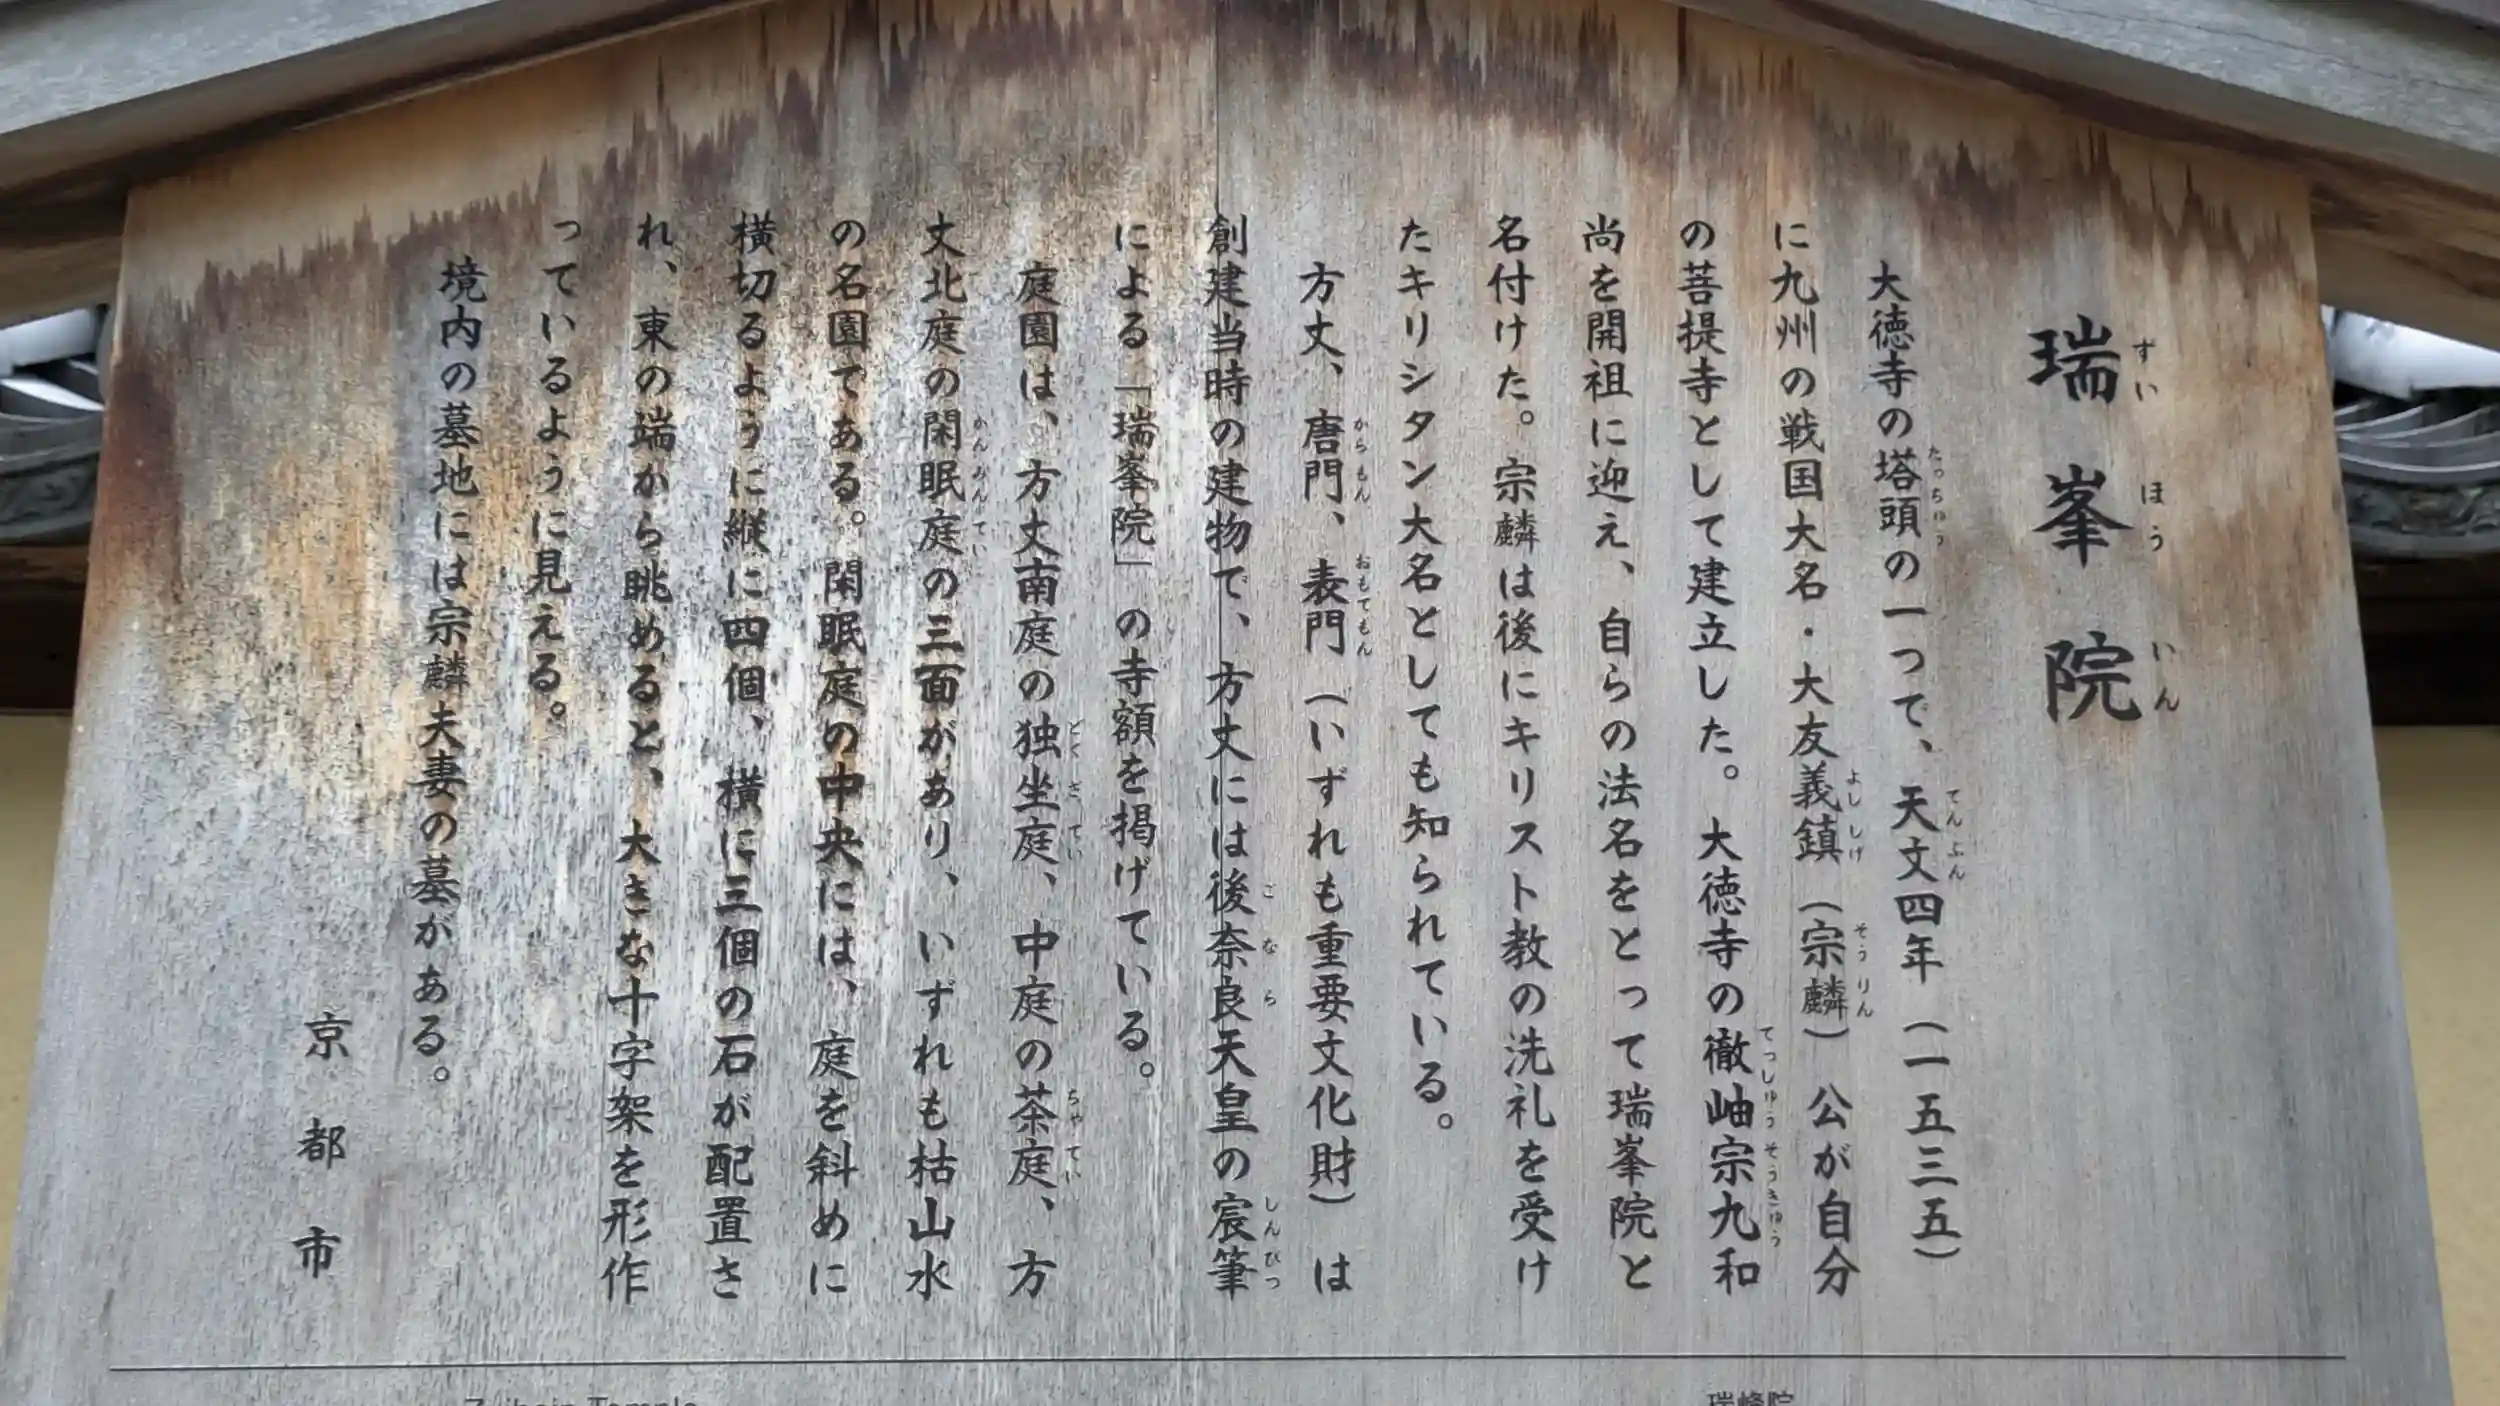 瑞峯院
ずいほういん
大徳寺の塔頭の一つで、天文四年(一五三五)
たっちゅう てんぶん
に九州の戦国大名・大友義鎮(宗麟)公が自分
よししげ そうりん
の菩提寺として建立した。大徳寺の徹岫宗九和
てっしゅうそうきゅう
尚を開祖に迎え、自らの法名をとって瑞峯院と
名付けた。宗麟は後にキリスト教の洗礼を受け
たキリシタン大名としても知られている。
方丈、唐門、表門(いずれも重要文化財)は
からもん おもてもん
創建当時の建物で、方丈には後奈良天皇の宸筆
ごなら しんぴつ
による「瑞峯院」の寺額を掲げている。
庭園は、方丈南庭の独坐庭、中庭の茶庭、方
どくざてい ちゃてい
丈北庭の閑眠庭の三面があり、いずれも枯山水
かんみんてい
の名園である。閑眠庭の中央には、庭を斜めに
横切るように縦に四個、横に三個の石が配置さ
れ、東の端から眺めると、大きな十字架を形作
っているように見える。
境内の墓地には宗麟夫妻の墓がある。
京都市
Zuihoin Temple
瑞峰院